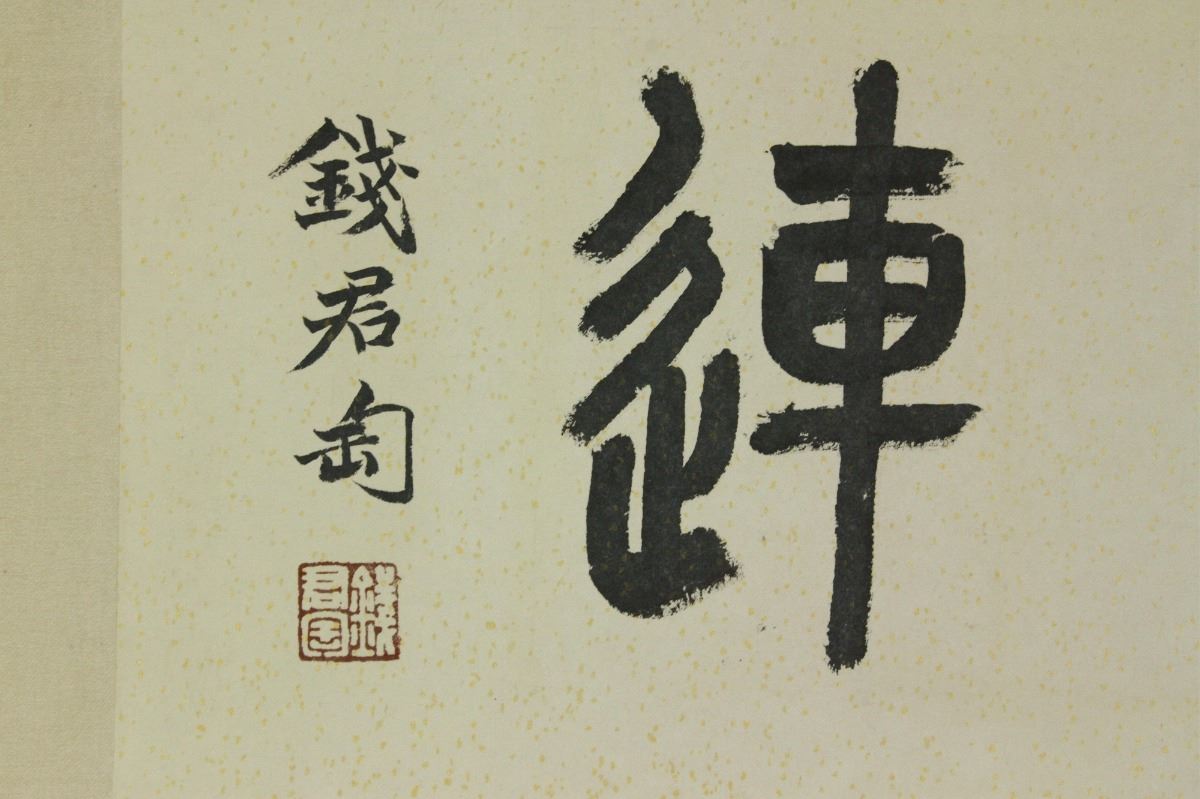 連
錢君匋
錢君匋